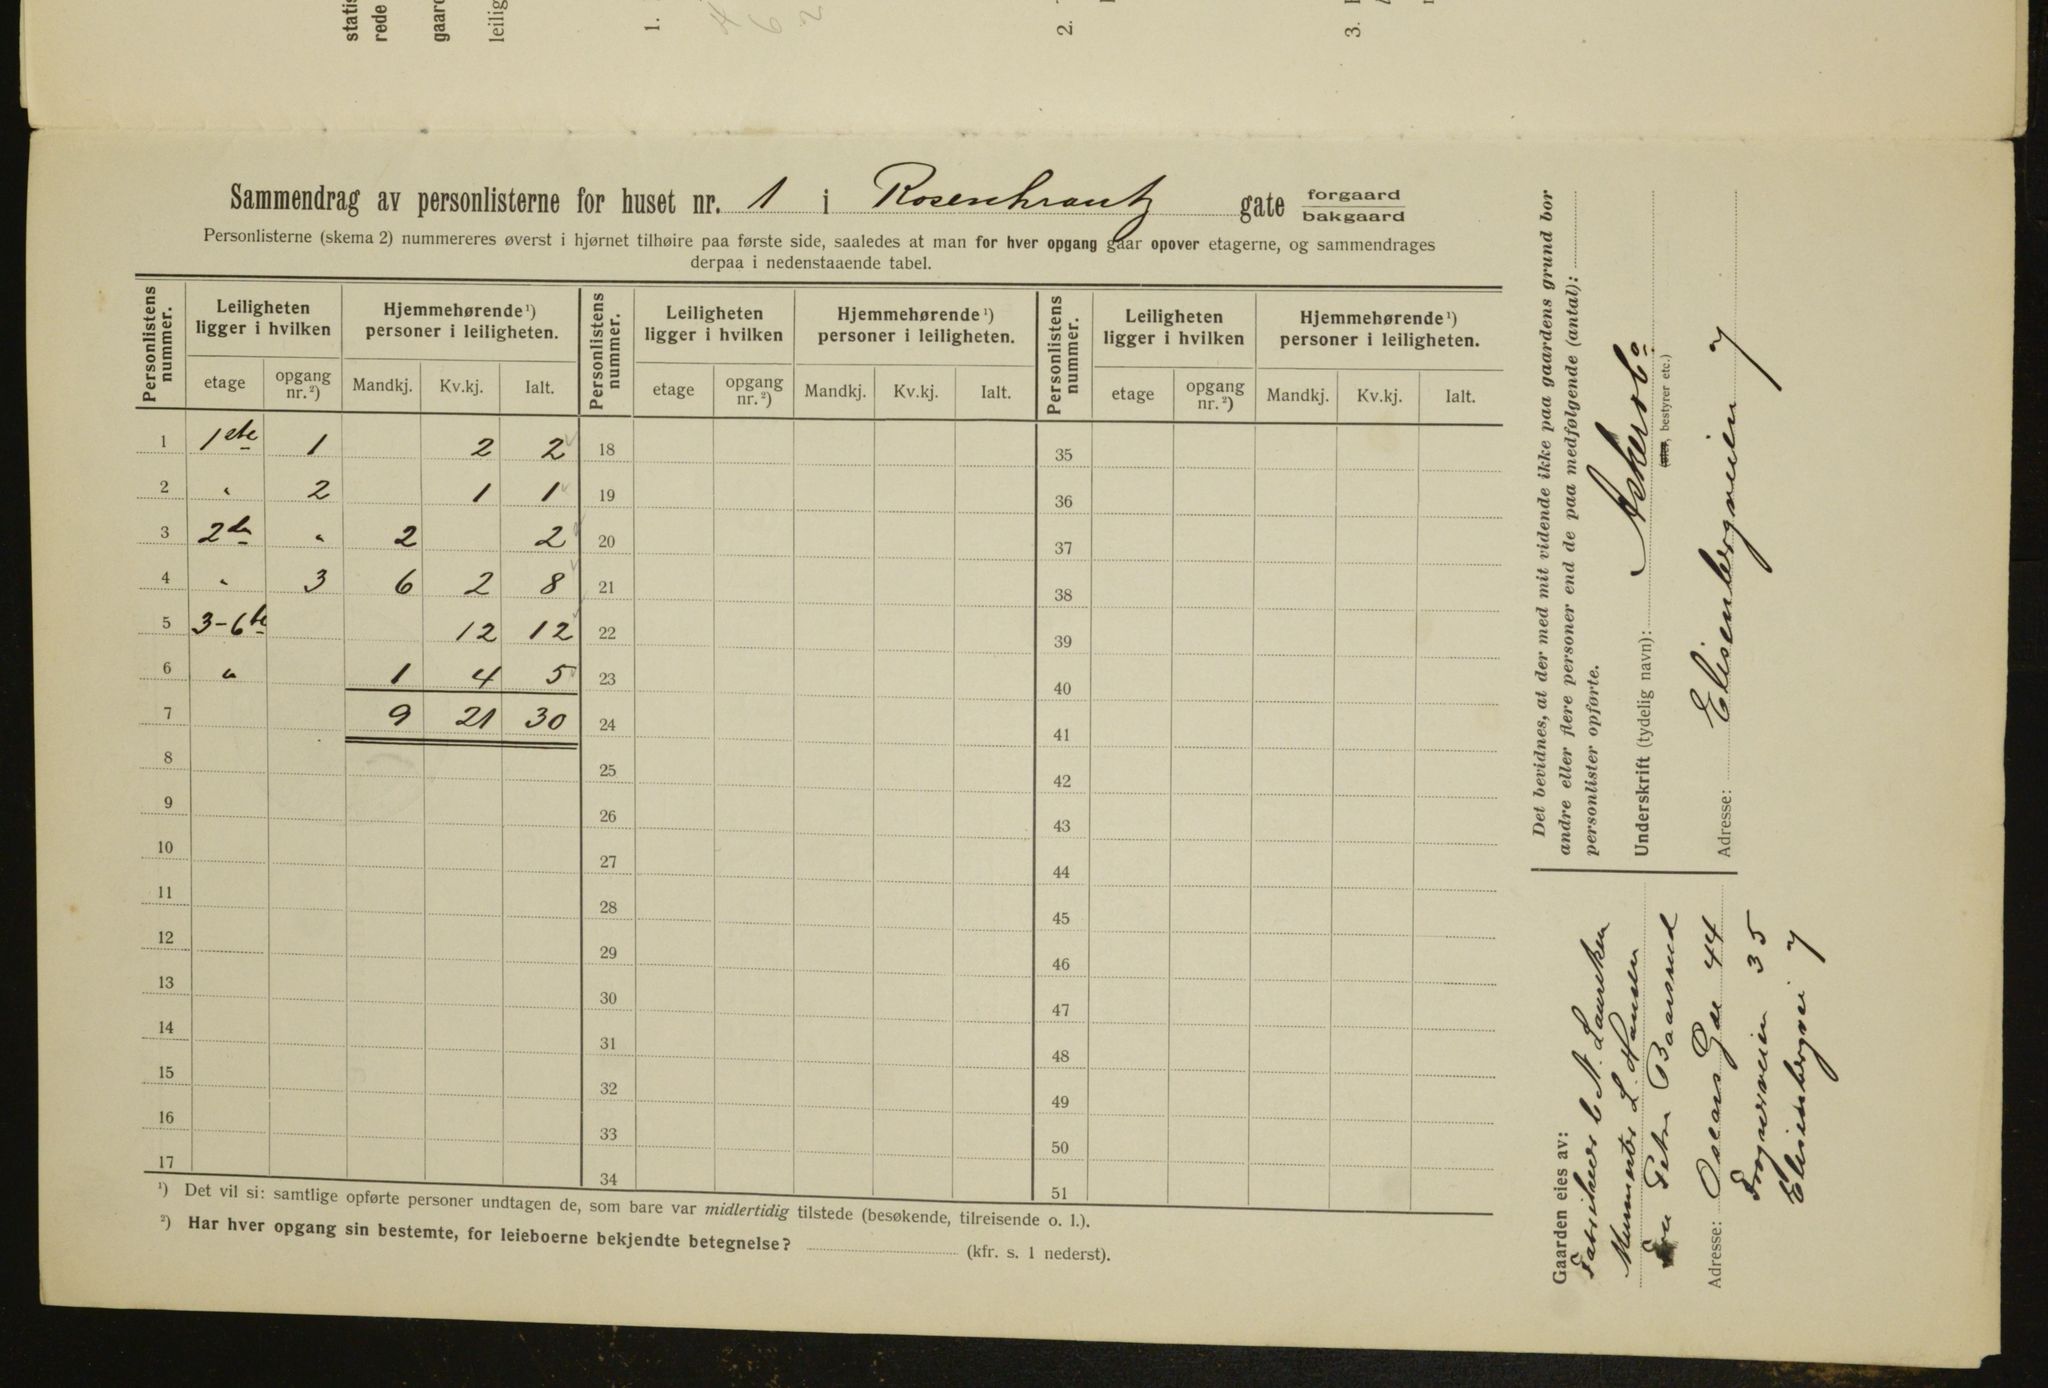 statis
rede
gaard
leilig
1.
4
6
2
2.
3.
Sammendrag av personlisterne for huset nr. 1 i Rosenkrantz gate forgaard
bakgaard
Personlisterne (skema 2) nummereres øverst i hjørnet tilhøire paa første side, saaledes at man for hver opgang gaar opover etagerne, og sammendrages
derpaa i nedenstaaende tabel.
Personlistens nummer. Leiligheten ligger i hvilken Hjemmehørende ¹) personer i leiligheten. Personlistens nummer. Leiligheten ligger i hvilken Hjemmehørende ¹) personer i leiligheten. Personlistens nummer. Leiligheten ligger i hvilken Hjemmehørende ¹) personer i leiligheten.
etage opgang nr. ²) Mandkj. Kv.kj. Ialt. etage opgang nr. ²) Mandkj. Kv.kj. Ialt. etage opgang nr. ²) Mandkj. Kv.kj. Ialt.
1 1ste 1 2 2 18 35
2 " 2 1 1 19 36
3 2den " 2 2 20 37
4 " 3 6 2 8 21 38
5 3-6te 12 12 22 39
6 " 1 4 5 23 40
7 9 21 30 24 41
8 25 42
9 26 43
10 27 44
11 28 45
12 29 46
13 30 47
14 31 48
15 32 49
16 33 50
17 34 51
¹) Det vil si: samtlige opførte personer undtagen de, som bare var midlertidig tilstede (besøkende, tilreisende o. l.).
²) Har hver opgang sin bestemte, for leieboerne bekjendte betegnelse? (kfr. s. 1 nederst).
Det bevidnes, at der med mit vidende ikke paa gaardens grund bor
andre eller flere personer end de paa medfølgende (antal):
personlister opførte.
Underskrift (tydelig navn):
(eier, bestyrer etc.)
Adresse: Elisenbergveien 7
Gaarden eies av:
Fabrikeier C N. Lauritzen
Murmester L. Hansen
Fru Petra Baarsrud
Adresse: Oscars Gde 44
Frognerveien 35
Elisenbergvei 7